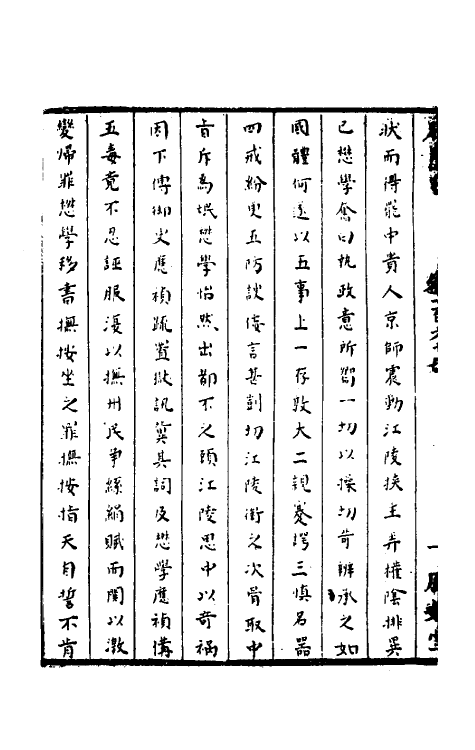 狀而得罷中貴人京師震動江陵挾主弄權陰排異
已懋學奮曰執政意所嚮一切以操切苛辦承之如
國體何遂以五事上一存敦大二親蹇諤三慎名器
四戒紛更五防諛佞言甚剴切江陵銜之次骨取中
旨斥為氓懋學怡然出都不之顧江陵思中以奇禍
因下傅御史應禎疏置獄訊冀其詞及懋學應禎備
五毒竟不忍誣服復以撫州民爭絲絹賦而鬨以激
變歸罪懋學移書撫按坐之罪撫按指天自誓不肯